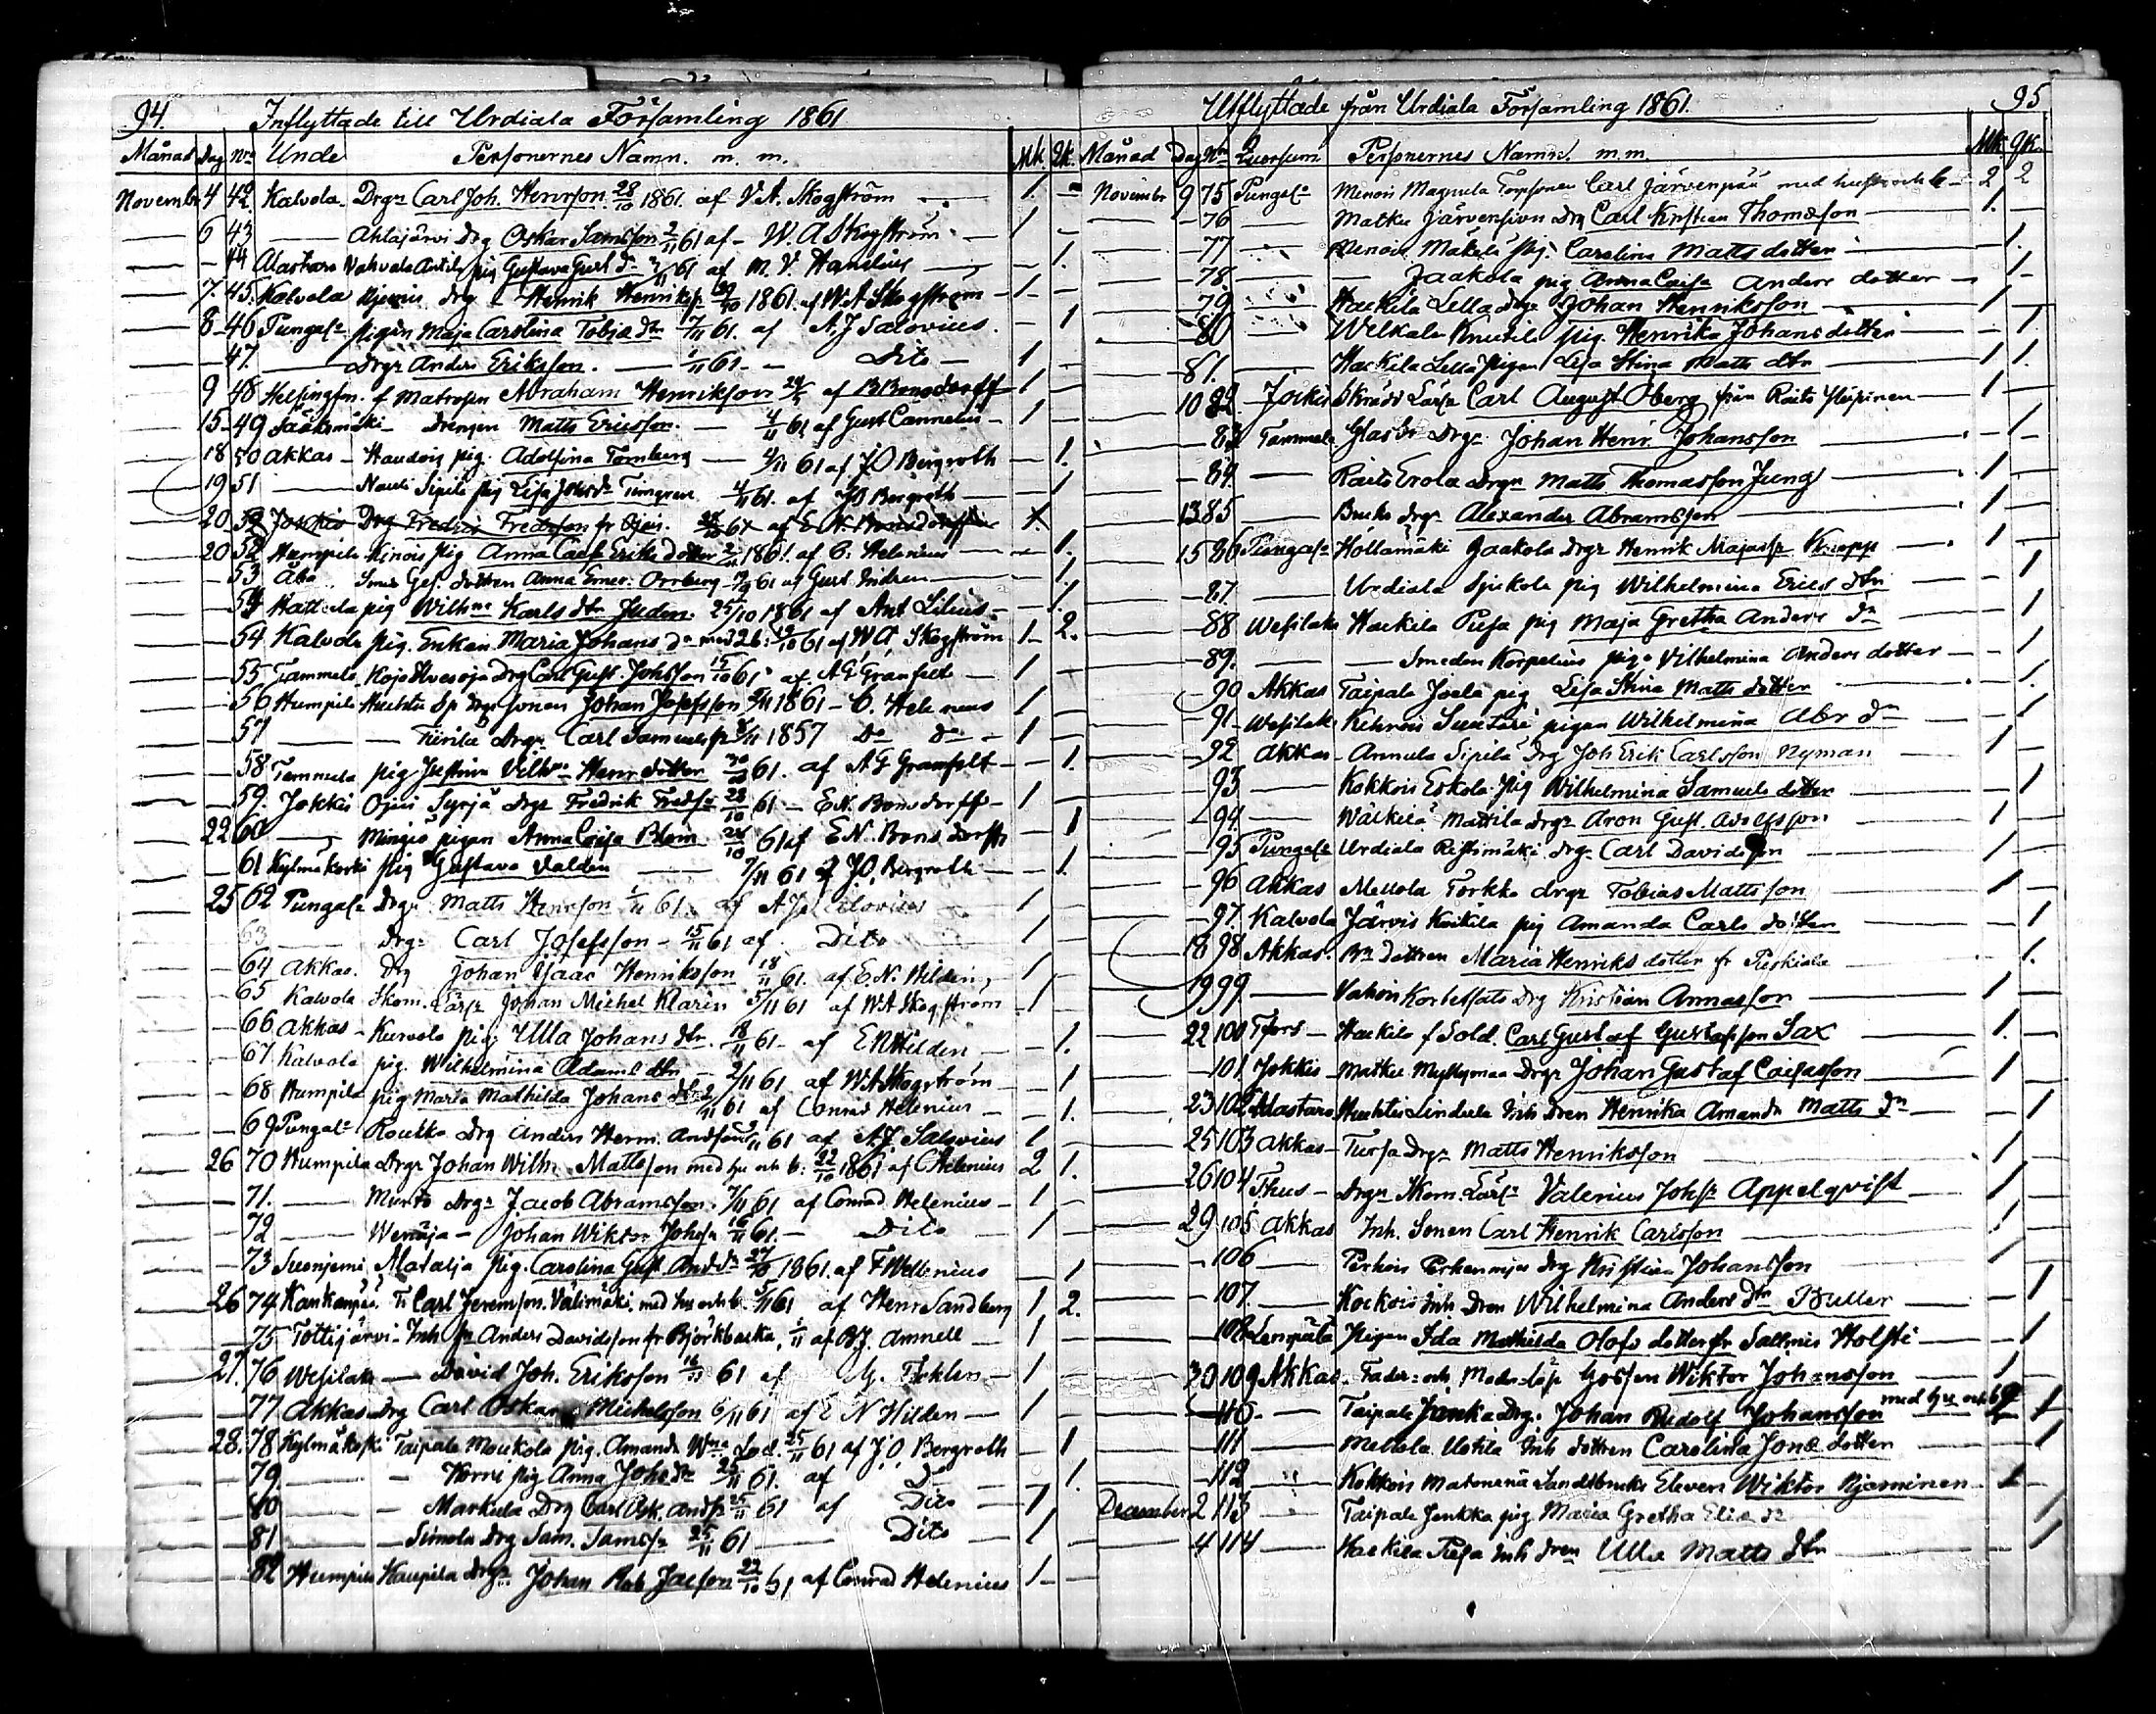 94. Inflyttade till Urdiala Församling 1861
Månad Dag Nro Unde Personernes Namn. m. m. Mk Qk.
Novembr 4 42. Kalvola Drgn Carl Joh. Henrson. 28/10 1861. af V. A. Skogström 1. -
6 43 Ahlajärvi Drg Oskar Samsson 2/11 61 af W. A Skogström 1 -
- 44 Alastaro Vahvala Anttila pig Gustava Gust dr /11 61 af M. V. Hanelius - 1.
7. 45. Kalvola drg Henrik Henriks /10 1861. af W. A Skogström 1 -
8 46 Pungalo pigan Maja Carolina Tobia dtr 7/11 61. af A. J Salovius. - 1
- 47. Drgn Anders Eriksson. /11 61 - Dito 1
9 48 Helsingfrs. f Matrosen Abraham Henriksson af B Bonsdorff 1
15 49 Sääksmäki Drengen Matts Ericsson. 4/11 61 af Gust Cannelin 1
18 50 Akkas pig. Adolfina Tornberg 4/11 61 af J O Bergroth - 1.
19 51 Nauli Sipilä pig Lisa Johs dr Timgren 4/11 61. af J O Bergroth 1
20 52 Jokkis Drg Fredric Fredrson fr Ojais. 28/10 61 af E. N. Bonsdorff
20 52 Humpila pig Anna Caisa Eriks dotter 2/11 1861. af C. Helenius - 1.
53 Åbo Smed Ges. dottren Anna Emer. Orrberg 61 af Gust. Indren - 1
54 Hattula pig Wilhna Karls dtr Juden. 25/10 1861 af Ant Lilius 1.
54. Kalvola pig. Enkan Maria Johans dr med 2 b: /10 61 af W A, Skogström 1 2.
55 Tammela Kojo drg Carl Gust. Johsson 15/10 61 af A G Granfelt 1
56 Humpila Huhtis Sp Drgn Sonen Johan Josefsson 2/11 1861 - C. Helenius 1
57 Tiirilä Drgn Carl Samuels /11 1857 Do do 1
58 Tammela pig Justina Vilhna Henr dotter 30/10 61. af A G Granfelt - 1
59. Jokkis Ojais Syrjä Drgn Fredrik Fredsn 28/10 61 - E N. Bonsdorff 1
22 60 Mingiö pigan Anna Caisa Blom 28/10 61 af E N. Bonsdorff - 1
61 Kylmäkoski pig Gustava Valden 7/11 61 af J O, Bergroth - 1.
25 62 Pungalo Drgn Matts Henrsson 1/11 61. af A J. Salovius 1
63 Drgn Carl Josefsson - 15/11 61 af Dito 1
64 Akkas. Drg Johan Isaac Henriksson 18/11 61. af E. N. Hilden, 1
65 Kalvola Skom. Lärl Johan Michel Klarin 5/11 61 af W A Skogström 1
66. Akkas - Kurvola pig. Ulla Johans dtr. 18/11 61 - af E N Hilden - 1.
67 Kalvola pig. Wilhelmina Adams dtr 2/11 61 af W. A Skogström - 1
68 Humpila pig Maria Mathilda Johans dtr 2/11 61 af Conrad Helenius - 1.
69 Pungalo Routko Drg Anders Herm. Andsson /11 61 af A. J. Salovius 1
26 70 Humpila Drgn Johan Wilh. Mattsson med hu och b: 22/10 1861 af C Helenius 2 1.
71. Murto Drgn Jacob Abramsson. 7/11 61 af Conrad. Helenius 1
72 Wenäja - Johan Wiktor Johsn 16/11 61. - Dito 1
73 Suonjemi Matalja pig. Carolina Gust. And dr 27/10 1861. af F Wellenius 1
26 74. Kankanpää Ti Carl Jeremson. Välimäki med hu och b. 5/11 61 af Henr Sandberg 1 2.
75 Tottijärvi - Inh sn Anders Davidsson fr Björkbacka, 1/11 af B. J. Amnell 1
27. 76 Wesilaks David Joh. Eriksson 16/11 61 af G. Ticklen 1
77 Akkas drg Carl Oskar Michelsson 6/11 61 af E N Hilden 1
28. 78 Kylmäkoski Taipale Moukola pig. Amanda Wma Lod. 25/11 61 af J. O, Bergroth - 1
79. - Korri pig Anna Johs dr 25/11 61. af Do - 1.
80 - Markula Drg Carl Osk. Andsn 25/11 61 af Dito 1
81 Simola Drg Sam. Samsn 25/11 61 Dito 1
82 Humpila Kaupila Drgn Johan Rob Jacson 22/10 61 af Conrad Helenius 1 -
Utflyttade från Urdiala Församling 1861. 95
Månad Dag Nro Quorsum Personernes Namn. m.m. Mk. Qk.
Novembr 9 75 Pungalo Menois Maguula Torpsonen Carl Järvenpää med hustro och b 2 2
76 Matku Järvensivu Drg Carl Kristian Thomsson 1.
77 Menois Mäkelä pig. Carolina Matts dotter 1.
78. Jaakola pig Anna Caisa Anders dotter 1
79. Haekila Lella drgn Johan Henriksson 1
80 Welkala Knuutila pig. Henrika Johans dotter 1.
81. Haekila Lella Pigan Lisa Stina Matts dtr 1.
10 82. Jockis Skrädd Lärl Carl August Öberg från Raito 1
83 Tammela Glasbr Drgn Johan Henr. Johansson 1
84. Raito Erola Drgn Matts Thomasson Ljung 1
13 85 Drgn Alexander Abramsson 1
15 86 Pungalo Hollamäki Jaakola Drgn Henrik Majasn Knapp 1
87. Urdiala Spickola pig Wilhelmina Erics dtr 1
88 Wesilaks Haekila Piesa pig Maja Gretha Anders dr 1
89. Smeden Korpelius piga Vilhelmina Anders dotter 1
90 Akkas Taipale Joela pig Lisa Stina Matts dotter 1.
91 Wesilaks pigan Wilhelmina Abr dr 1
92 Akkas Annula Sipilä Drg Joh Erik Carlsson Nyman 1
93 Kokkois Eskola pig Wilhelmina Samuels dotter 1
94. Mattila Drgn Aron Gust. Adolfsson 1
95 Pungalo Urdiala Ristimäki drgn Carl Davidsson 1
96 Akkas Mellola Torkko drgn Tobias Mattsson 1
97. Kalvola Järvis Koikila pig Amanda Carls dotter 1
18 98 Akkas. Bn dottren Maria Henriks dotter fr Puskiala 1.
19 99 Drg Kristian Annasson 1
22 100 Tfors Haekila f Sold. Carl Gustaf Gustafsson Sax 1.
101. Jokkis Matku Myllymaa Drgn Johan Gustaf Caisasson 1
23 102 Alastaro Huhtis Lindula Inh Dren Henrika Amanda Matts dr 1
25 103 Akkas Tursa Drgn Matts Henriksson 1
26 104 Thus Drgn Skom. Lärl Valerius Johsn Appelqvist 1
29 105 Akkas Inh. Sonen Carl Henrik Carlsson 1
106 Perhois Drg Kristian Johansson 1
107. Kockois Inh Dren Wilhelmina Anders dtr Buller 1
108 Lempälä Pigan Ida Mathilda Olofs dotter fr Sallmis Holsti 1
30 109 Akkas Fader- och Moderlöse Gossen Wiktor Johansson 1
110. Taipale Jänka Drgn Johan Rudolf Johansson med hu och b 2 1
111 Mellola Uotila Inh dottren Carolina Jons dotter 1
112 Kokkois Matomenä Landtbruks Eleven Wiktor Njeminen 1
December 2 113 Taipale Jenkka pig Maria Gretha Elia dr 1
4 114 Haekila Piesa Inh dren Ulla Matts dtr 1